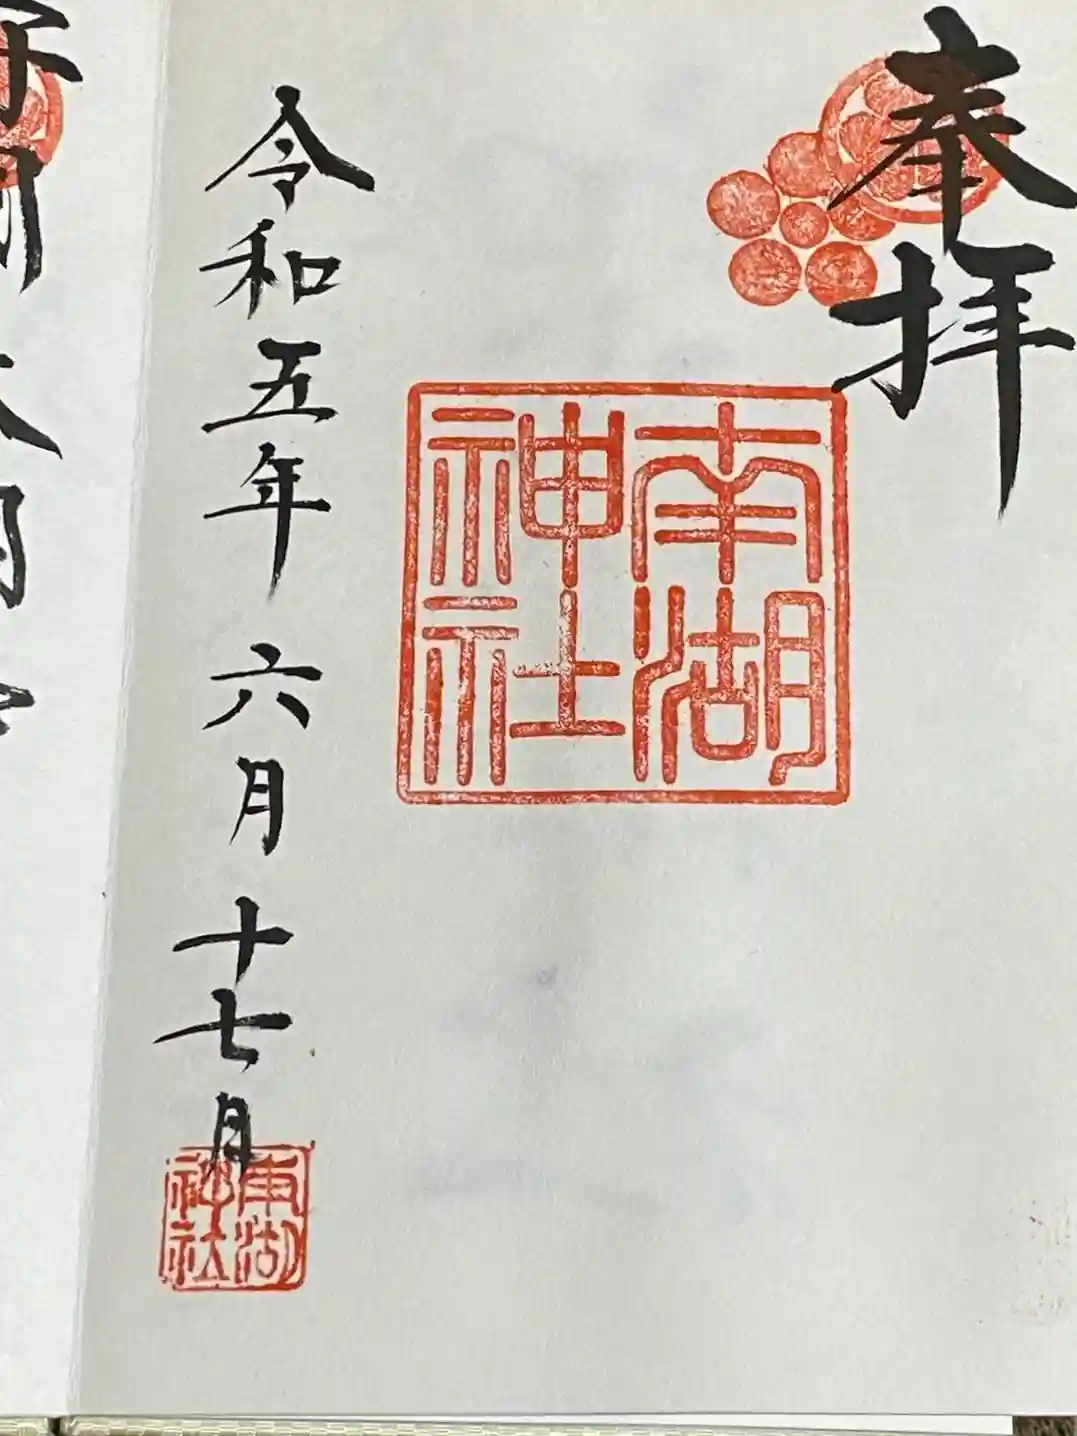 奉拝
南湖
神社
令和五年 六月 十七日
南湖
神社